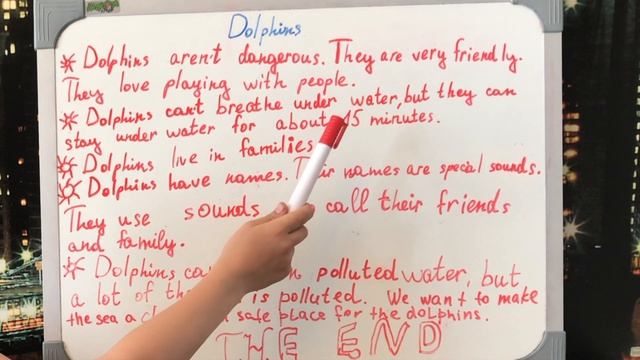 Dolphins
Dolphins aren't dangerous. They are very friendly.
They love playing with people.
Dolphins can't breathe under water, but they can
stay under water for about 15 minutes.
Dolphins live in families.
Dolphins have names. names are special sounds.
They use sounds call their friends
and family.
Dolphins polluted water, but
a lot of is polluted. We want to make
the sea a safe place for the dolphins.
THE END